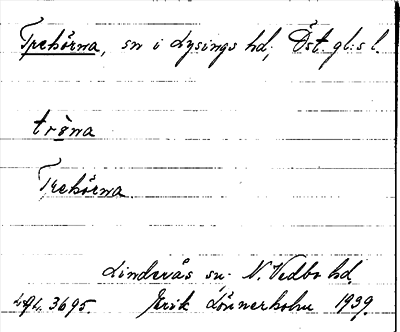 Trehörna, sn i Lysings hd, Öst. gl:s l.
tröna
Trehörna
Linderås sn. N. Vedbo hd.
3695. Erik Lönnerholm 1939.